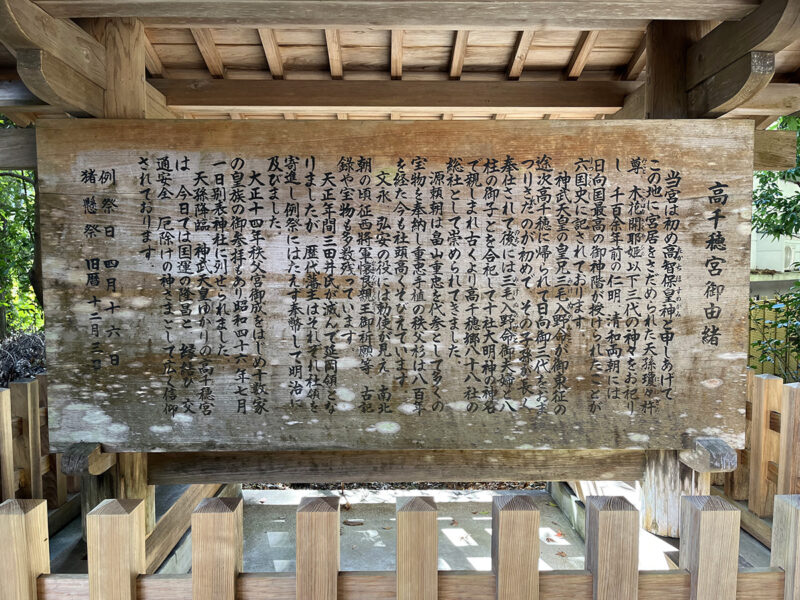 高千穂宮御由緒
当宮は初め高智保皇神と申しあげて
この地に宮居をさだめられた天孫瓊々杵
尊 木花開耶姫以下三代の神々をお祀り
し 千百余年前の仁明、清和両朝には
日向国最高の御神階が授けられたことが
六国史に記されております。
神武天皇の皇兄三毛入野命が御東征の
途次高千穂に帰られて日向御三代をおま
つりさたのが初めて、その子孫が長く
奉仕されて後には三毛入野命御夫婦と八
柱の御子とを合祀して十社大明神の神名
で親しまれ古くより高千穂郷八十八社の
総社として崇められてきました。
源頼朝は畠山重忠を代参として多くの
宝物を奉納し重忠手植の秩父杉は八百年
を経た今も社頭高くそびえています。
文永 弘安の役には勅使が見え 南北
朝の頃征西将軍懐良親王御祈願等 古記
録や宝物も多数残っています。
天正年間三田井氏が滅んで延岡領とな
りましたが 歴代藩主はそれぞれ社領を
寄進し例祭にはたえず奉幣して明治に
及びました。
大正十四年秩父宮御成をはじめ十数家
の皇族の御参拝もあり昭和四十六年七月
一日別表神社に列せられました。
天孫降臨 神武天皇ゆかりの高千穂宮
は 今日では国運の隆昌と 縁結び 交
通安全 厄除けの神さまとして広く信仰
されております。
例祭日 四月十六日
猪懸祭 旧暦十二月三日